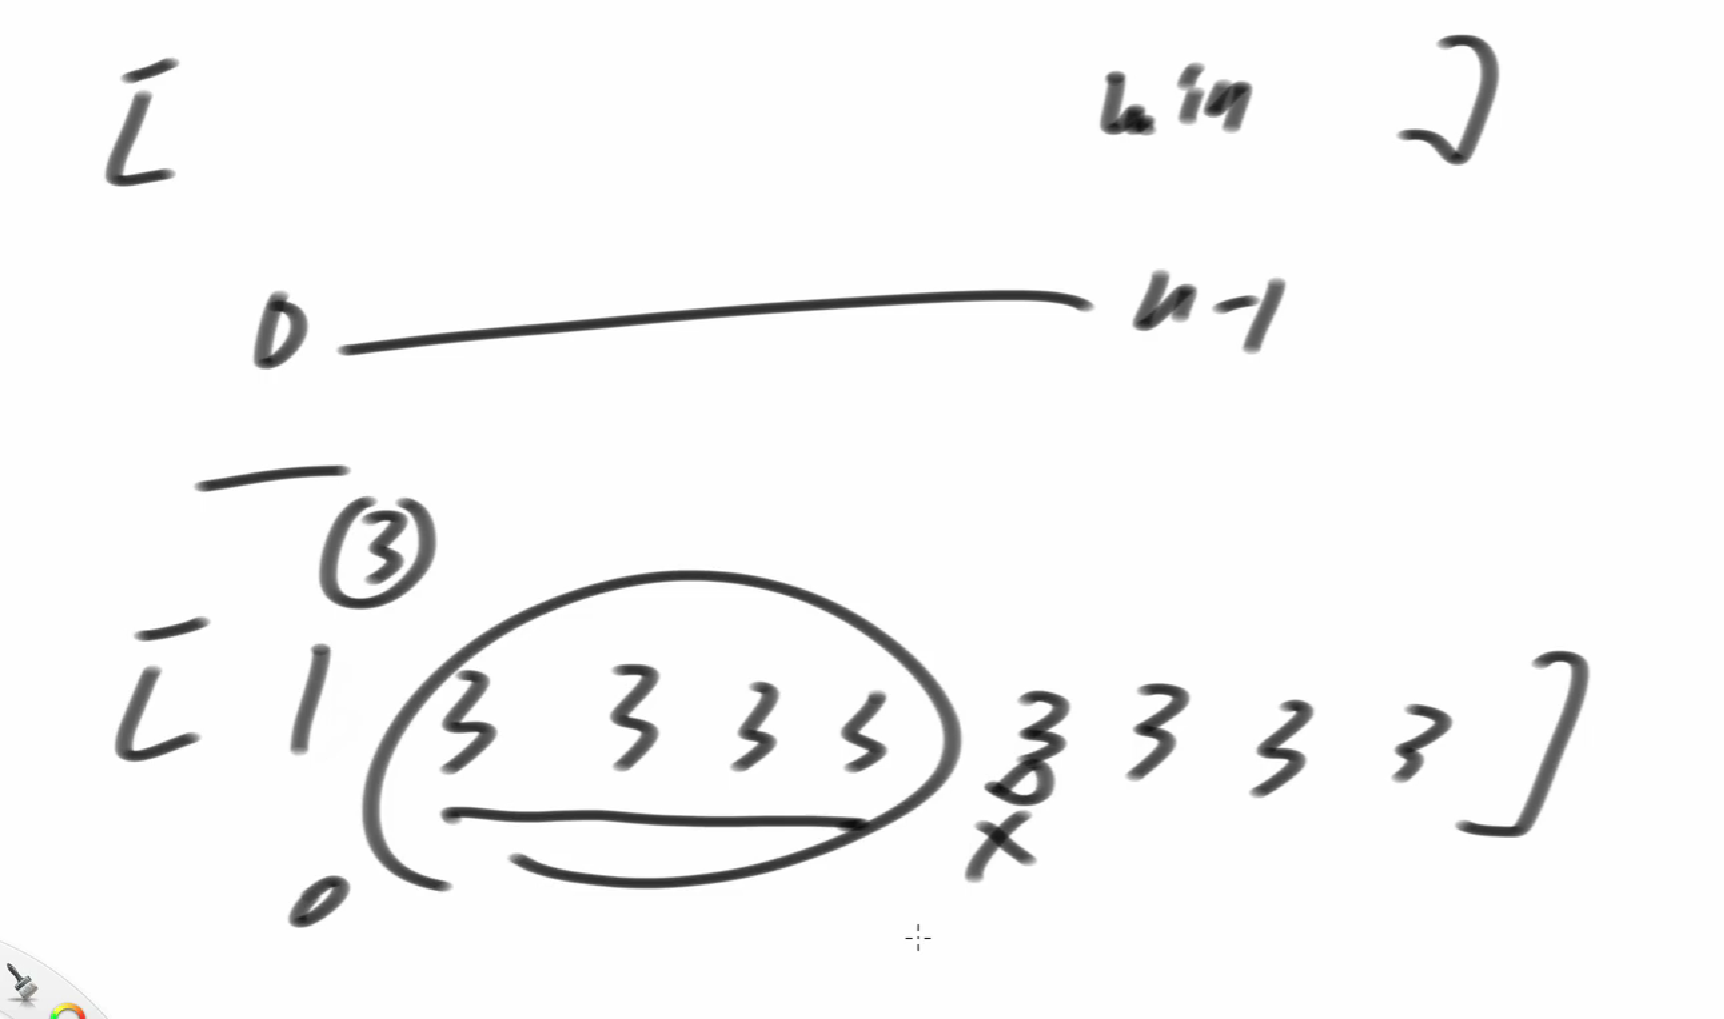 [ min ]
0 n-1
3
[ 1 3 3 3 3 3 3 3 3 ]
0 x